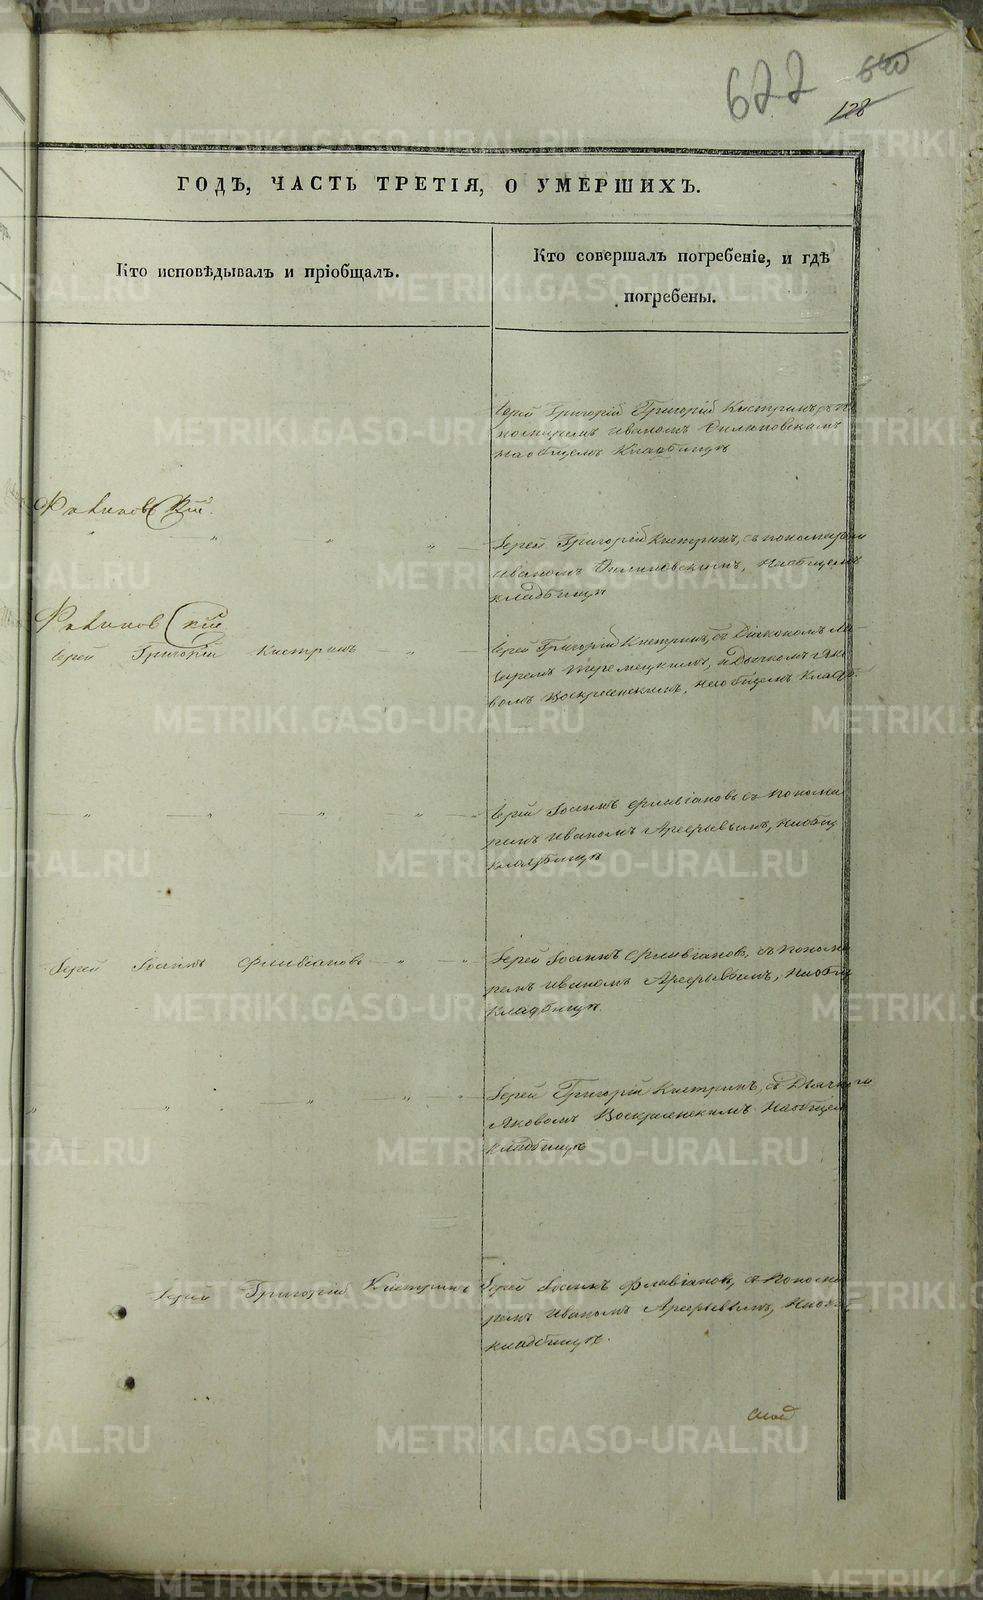 622
640
128
ГОДЪ, ЧАСТЬ ТРЕТІЯ, О УМЕРШИХЪ.
Кто исповѣдывалъ и пріобщалъ.
Кто совершалъ погребеніе, и гдѣ
погребены.
Іерей Григорій Григорій Кистринъ съ по
номаремъ Иваномъ Филиповскимъ
на общемъ Кладбищѣ
Іерей Григорій Кистринъ, съ пономаремъ
Иваномъ Филиповскимъ, на общемъ
кладбищѣ
Іерей Григорій Кистринъ
Іерей Григорій Кистринъ, съ Діакономъ
и Дьячкомъ Яко
вомъ Воскресенскимъ, на общемъ Кладб.
Іерей Іоаннъ Флавіановъ съ Понома
ремъ Иваномъ Арефьевымъ, на общ
Кладбищѣ
Іерей Іоаннъ Флавіановъ
Іерей Іоаннъ Флавіановъ, съ Понома
ремъ Иваномъ Арефьевымъ, на общ
Кладбищѣ.
Іерей Григорій Кистринъ, съ Дьячкомъ
Яковомъ Воскресенскимъ на общем
Кладбищѣ
Іерей Григорій Кистринъ
Іерей Іоаннъ Флавіановъ, съ Понома
ремъ Иваномъ Арефьевымъ, на общ
кладбищѣ.
METRIKI.GASO-URAL.RU